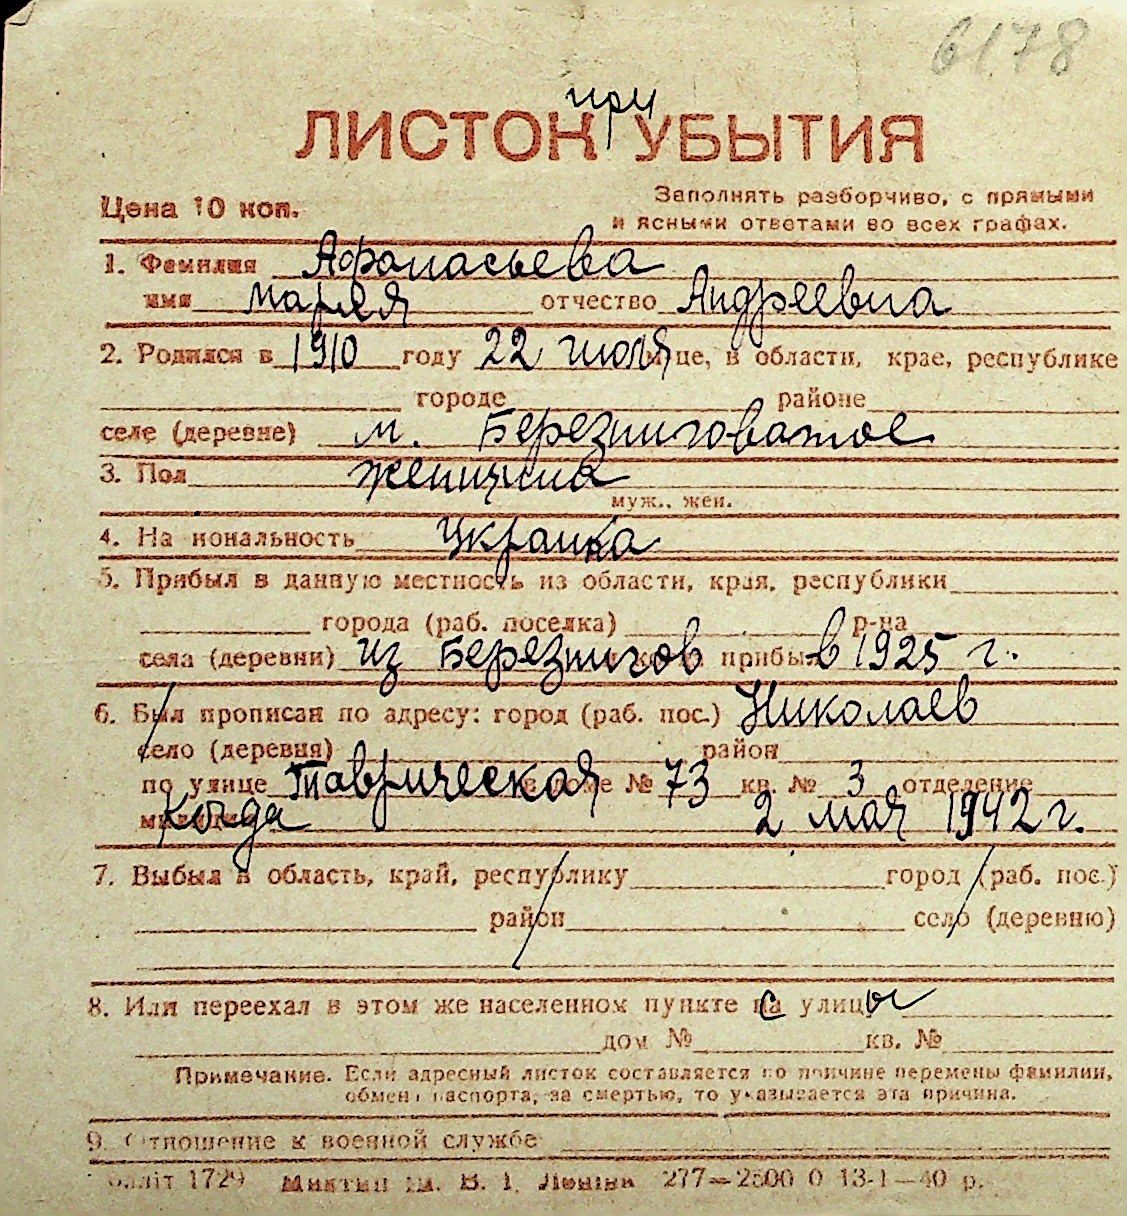 6178
при
ЛИСТОК УБЫТИЯ
Цена 10 коп.
Заполнять разборчиво, с прямыми
и ясными ответами во всех графах.
1. Фамилия Афанасьева
имя Мария отчество Андреевна
2. Родился в 1910 году 22 июля м-це, в области, крае, республике
городе районе
селе (деревне) м. Березниговатое
3. Пол женщина
муж., жен.
4. На иональность Украинка
5. Прибыл в данную местность из области, края, республики
города (раб. поселка) р-на
села (деревни) из Березнигов прибыл в 1925 г.
6. Был прописан по адресу: город (раб. пос.) Николаев
село (деревня) район
по улице Таврическая в доме № 73 кв. № 3 отделение
милиции Когда 2 мая 1942 г.
7. Выбыл в область, край, республику город (раб. пос.)
район село (деревню)
8. Или переехал в этом же населенном пункте с улицы
дом № кв. №
Примечание. Если адресный листок составляется по причине перемены фамилии,
обмена паспорта, за смертью, то указывается эта причина.
9. Отношение к военной службе
1729 им. В. І. Леніна 277—2500 0 13-1—40 р.